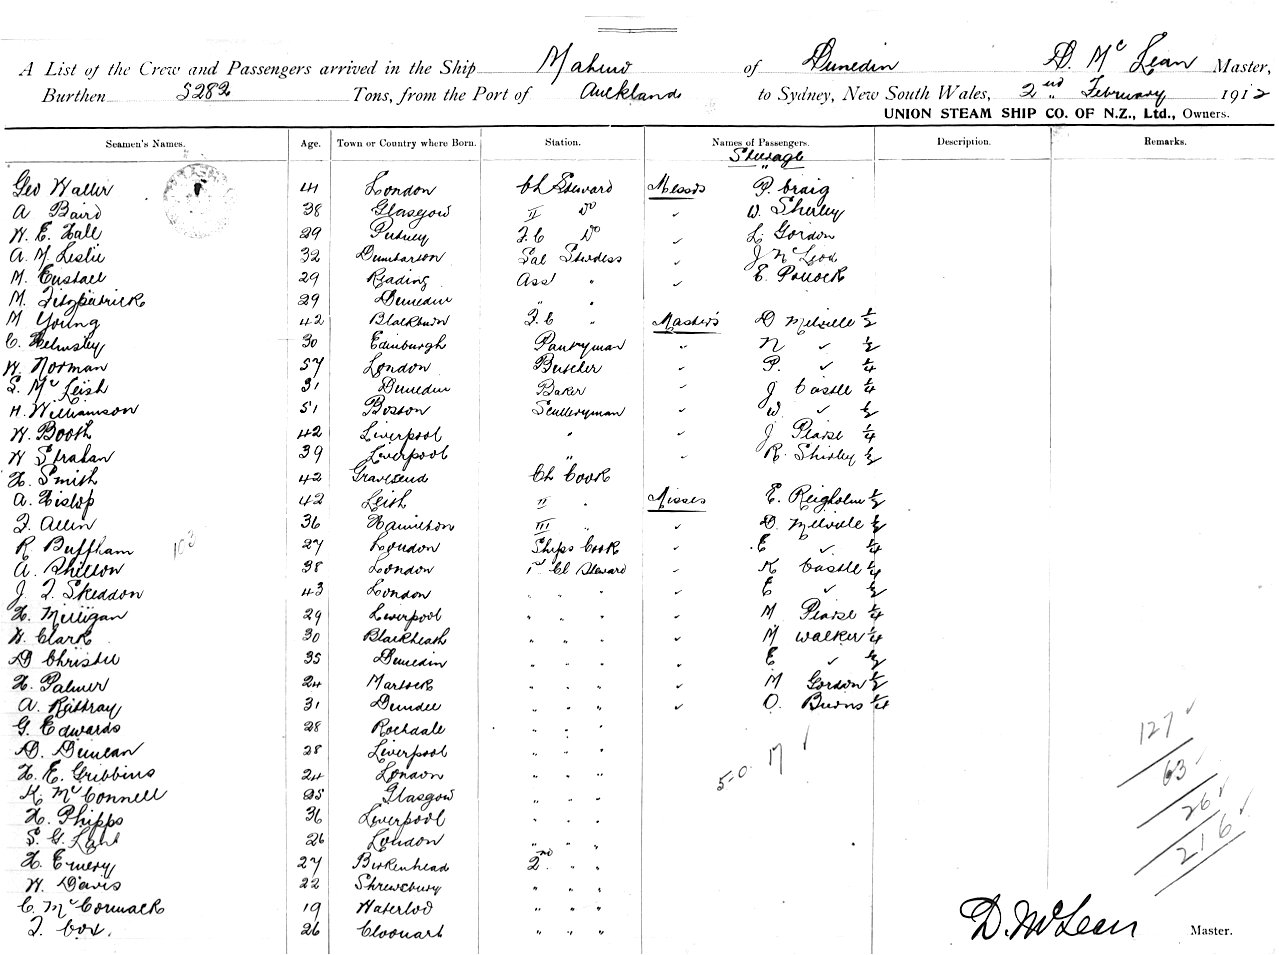 A List of the Crew and Passengers arrived in the Ship Maheno of Dunedin D. McLean Master,
Burthen 5282 Tons, from the Port of Auckland to Sydney, New South Wales, 2nd February 1912
UNION STEAM SHIP CO. OF N.Z., Ltd., Owners.
Seamen's Names. Age. Town or Country where Born. Station. Names of Passengers. Description. Remarks.
Steerage
Geo Waller 41 London Ch Steward Messrs P. Craig
A Baird 38 Glasgow II Do " W. Shirley
W. E. Hall 29 Putney F.C Do " L. Gordon
A. M. Leslie 32 Dumbarton Sal Stwdess " J McLeod
M. Eustace 29 Reading Asst " " E. Pollock
M. Fitzpatrick 29 Dunedin " "
M Young 42 Blackburn F.C " Masters D Melville 1/2
C. Helmsley 30 Edinburgh Pantryman " N " 1/2
W. Norman 57 London Butcher " P. " 1/4
S. McLeish 31 Dunedin Baker " J Castle 1/4
H. Williamson 51 Boston Sculleryman " W " 1/2
W. Booth 42 Liverpool " " J Pearse 1/4
W Strahan 39 Liverpool " " R. Shirley 1/2
H. Smith 42 Gravesend Ch Cook
A. Hislop 42 Leith II " Misses E. 1/2
F. Allen 36 Hamilton III " " D. Melville 1/2
R. Buffham 27 London Ships Cook " E " 1/4
A. Shilton 38 London 1st Cl Steward " K Castle 1/4
J. F. Skeddon 43 London " " " " E " 1/2
H. Milligan 29 Liverpool " " " " M Pearse 1/4
W. Clark 30 Blackheath " " " " M Walker 1/4
D Christie 35 Dunedin " " " " E " 1/2
H. Palmer 24 Martock " " " " M Gordon 1/2
A. Rattray 31 Dundee " " " " O. Burns 1/4
G. Edwards 28 Rochdale " " "
D. Duncan 28 Liverpool " " "
H. E. Gribbins 24 London " " "
K. McConnell 25 Glasgow " " "
H. Phipps 36 Liverpool " " "
S. G. Lane 26 London " " "
H. Emery 27 Birkenhead 2nd " "
W. Davis 22 Shrewsbury " " "
C. McCormack 19 Waterloo " " "
F. Cox. 26 " " "
103
50. 17
127
63
26
216
D. McLean Master.